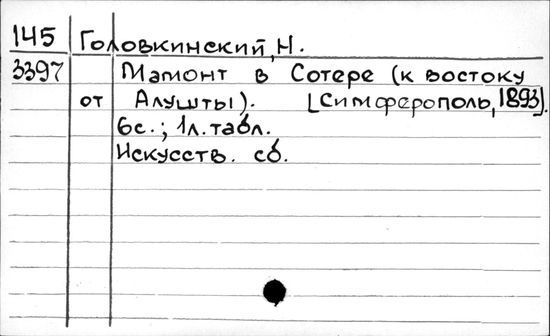 145 Головкинский, Н.
3397 Мамонт в Сотере (к востоку
от Алушты). [Симферополь, 1893].
6с.; 1л.табл.
Искусств. сб.